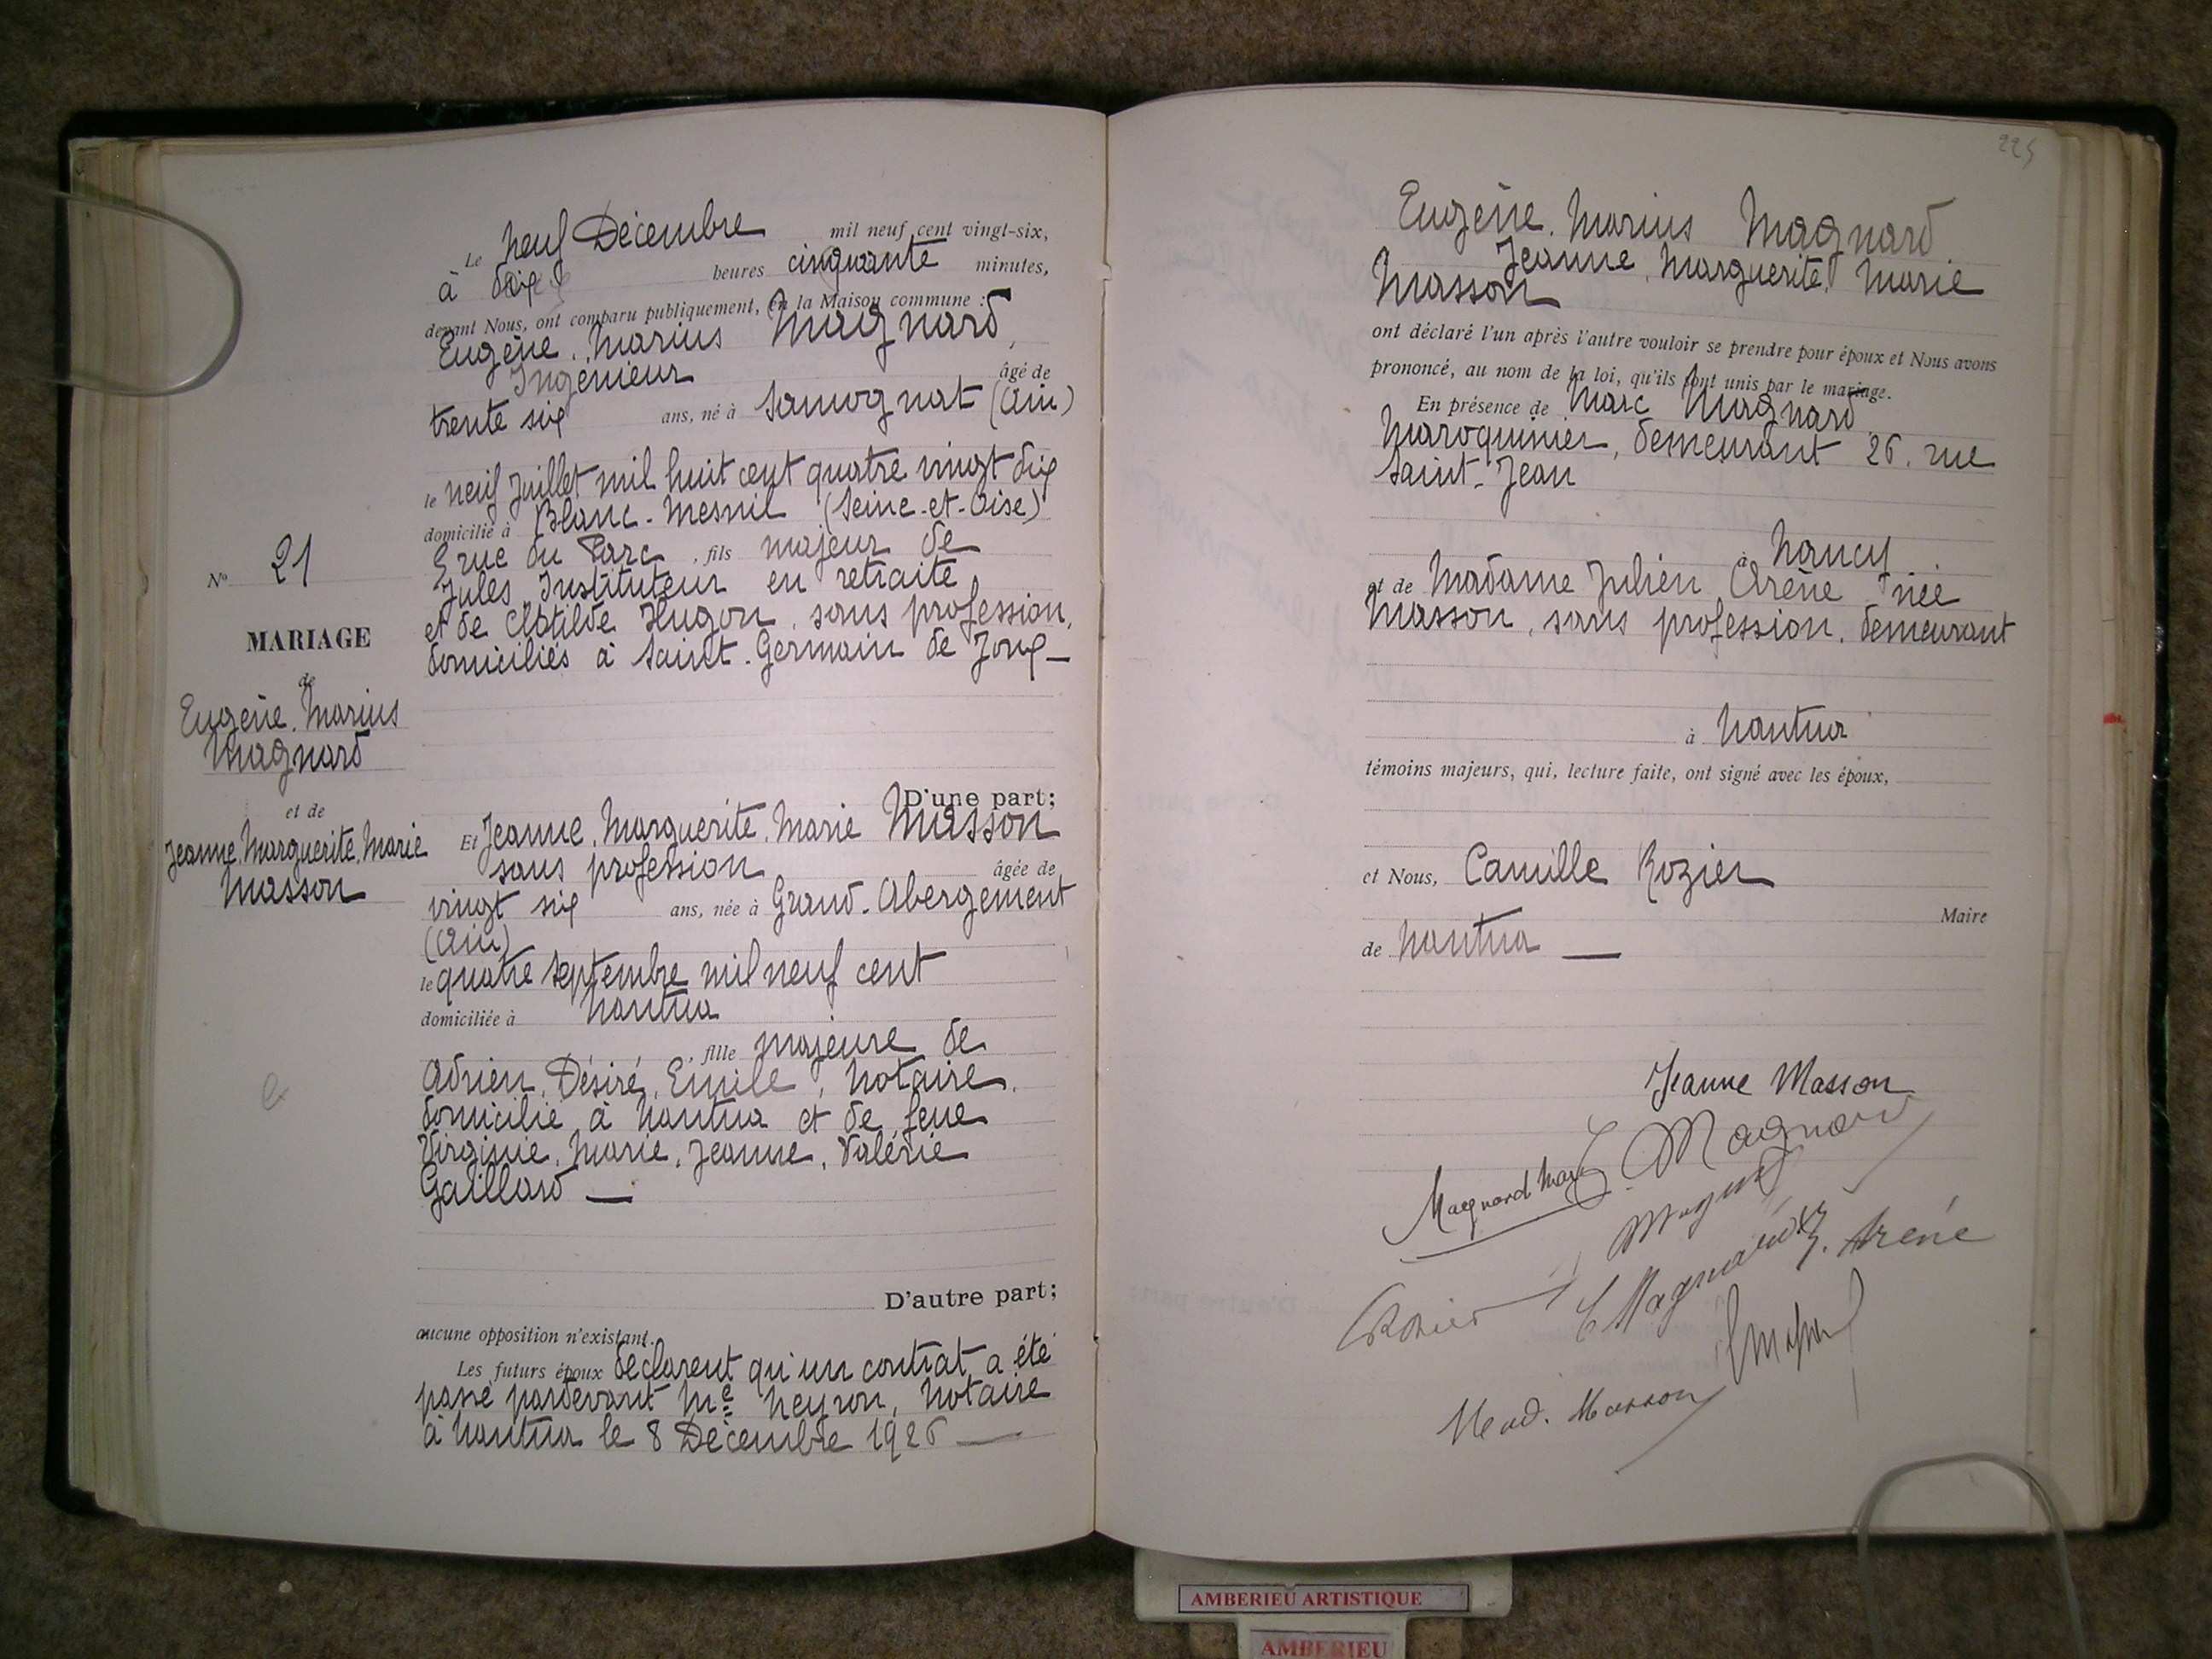 Le neuf Décembre mil neuf cent vingt-six,
à dix heures cinquante minutes,
devant Nous, ont comparu publiquement, en la Maison commune :
Eugène. Marius Magnard,
Ingénieur âgé de
trente six ans, né à Samognat (Ain)
le neuf Juillet mil huit cent quatre vingt dix
domicilié à Blanc-Mesnil (Seine-et-Oise)
rue du Parc, fils majeur de
Jules Instituteur en retraite
et de Clotilde Hugon, sans profession,
domiciliés à Saint-Germain de Joux —
D'une part;
Et Jeanne. Marguerite. Marie Masson
sans profession âgée de
vingt six ans, née à Grand-Abergement
(Ain)
le quatre Septembre mil neuf cent
domiciliée à Nantua
, fille majeure de
Adrien, Désiré, Emile, Notaire,
domicilié à Nantua et de feue
Virginie, Marie, Jeanne, Valérie
Gaillard —
D'autre part;
aucune opposition n'existant.
Les futurs époux déclarent qu'un contrat a été
passé pardevant Me Neyron, Notaire
à Nantua le 8 Décembre 1926 —
No 21
MARIAGE
de
Eugène. Marius
Magnard
et de
Jeanne. Marguerite. Marie
Masson
225
Eugène. Marius Magnard
Jeanne. Marguerite. Marie
Masson
ont déclaré l'un après l'autre vouloir se prendre pour époux et Nous avons
prononcé, au nom de la loi, qu'ils sont unis par le mariage.
En présence de Marc Magnard
Maroquinier, demeurant 26. rue
Saint-Jean
à Nancy
et de Madame Julien Arène née
Masson, sans profession, demeurant
à Nantua
témoins majeurs, qui, lecture faite, ont signé avec les époux,
et Nous, Camille Rozier
Maire
de Nantua —
Jeanne Masson
E. Magnard
Magnard Marc
Magnard
Arène
C Magnard
CRozier
Mad. Masson
AMBERIEU ARTISTIQUE
AMBERIEU